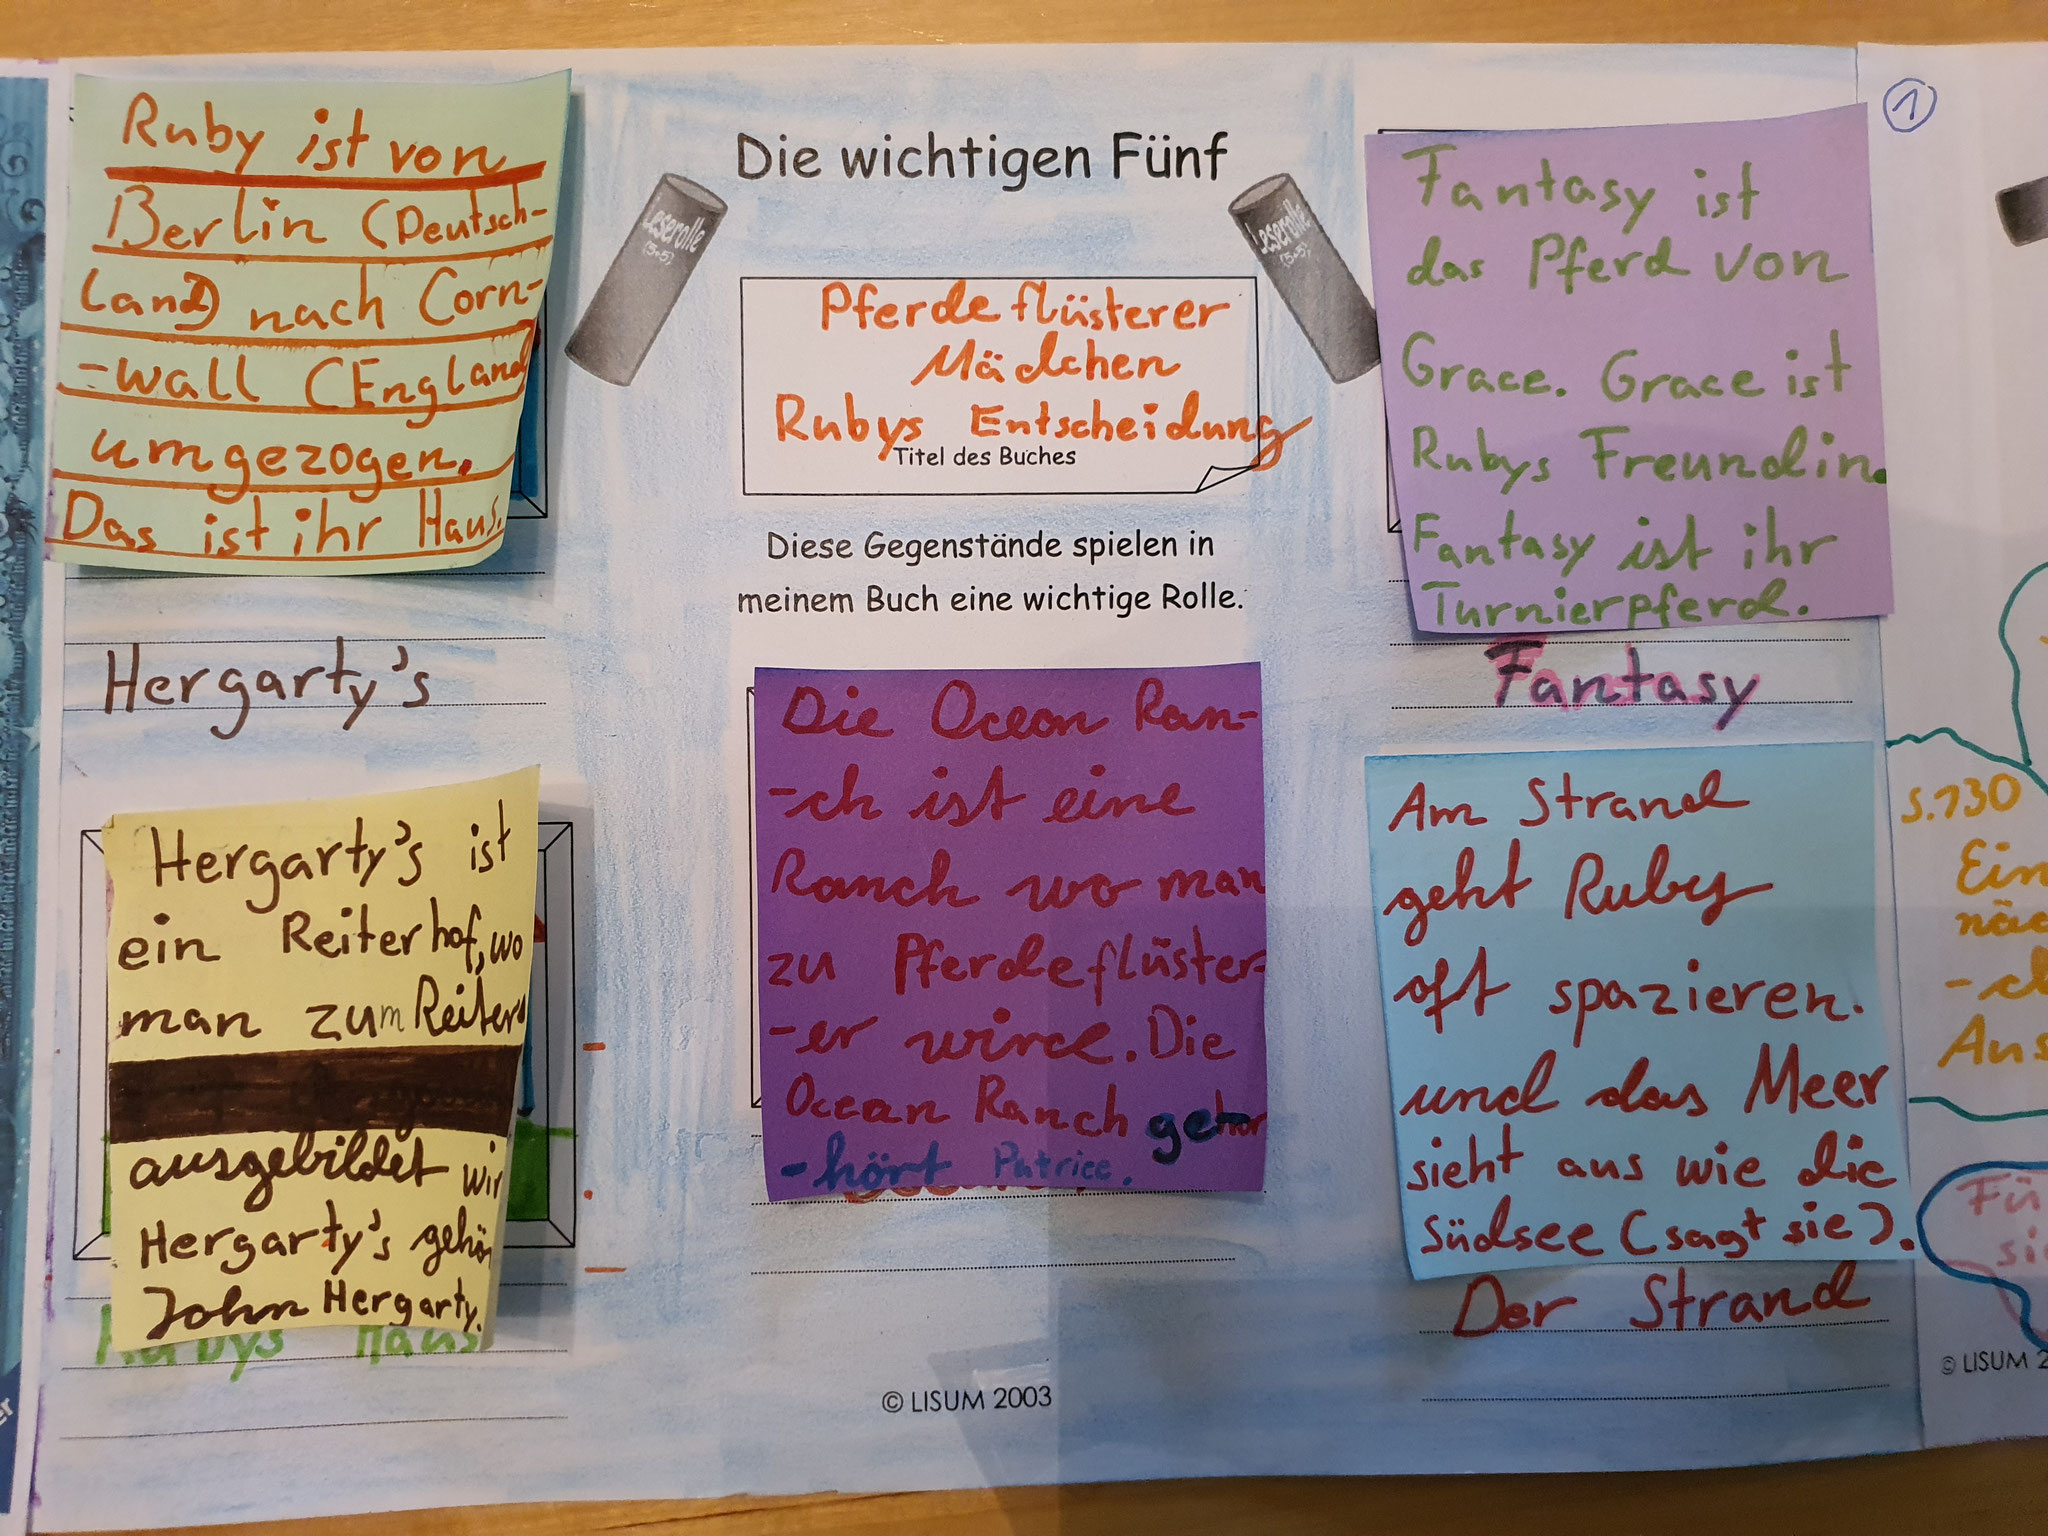 Ruby ist von
Berlin (Deutsch-
land) nach Corn-
-wall (England
umgezogen.
Das ist ihr Haus.
Hergarty's
Hergarty's ist
ein Reiterhof, wo
man zum Reiter
ausgebildet wir
Hergarty's gehö
John Hergarty.
Rubys Haus
Die wichtigen Fünf
Leserolle
(5+5)
Leserolle
(5+5)
Pferdeflüsterer
Mädchen
Rubys Entscheidung
Titel des Buches
Diese Gegenstände spielen in
meinem Buch eine wichtige Rolle.
Die Ocean Ran-
-ch ist eine
Ranch wo man
zu Pferdeflüster-
-er wird. Die
Ocean Ranch ge-
-hört Patrice.
© LISUM 2003
Fantasy ist
das Pferd von
Grace. Grace ist
Rubys Freundin.
Fantasy ist ihr
Turnierpferd.
Fantasy
Am Strand
geht Ruby
oft spazieren.
und das Meer
sieht aus wie die
Südsee (sagt sie).
Der Strand
1
S.130
Ein
näc
-ch
Aus
Fü
si
© LISUM 2
er